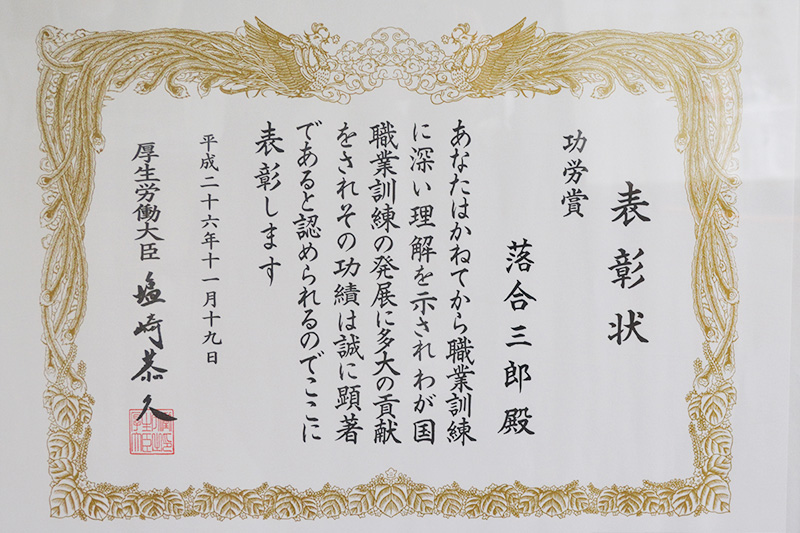 表彰状
功労賞
落合三郎殿
あなたはかねてから職業訓練
に深い理解を示されわが国
職業訓練の発展に多大の貢献
をされその功績は誠に顕著
であると認められるのでここに
表彰します
平成二十六年十一月十九日
厚生労働大臣 塩崎恭久